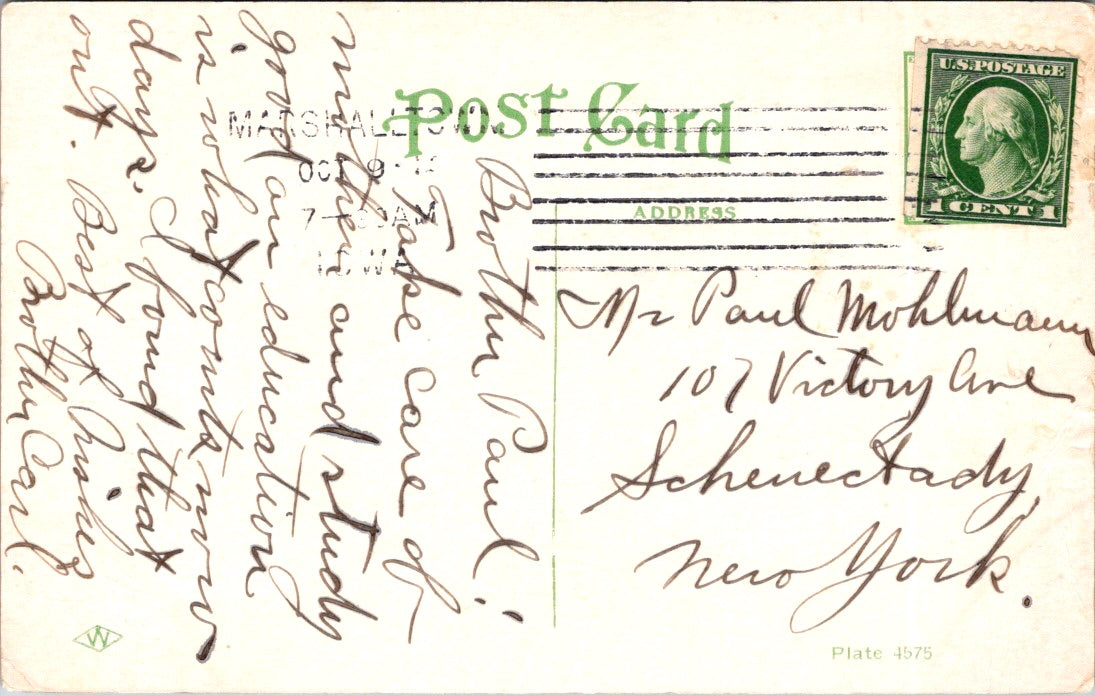 Post Card
MARSHALLTOWN
OCT 9
7 — 30 AM
IOWA
U.S. POSTAGE
1 CENT 1
ADDRESS
Mr Paul Mohlmann
107 Victory Ave
Schenectady,
New York.
Brother Paul!
Take care of
mother and study
good an education
is what counts now
days. I found that
out. Best of wishes
Brother Carl.
W
Plate 4575